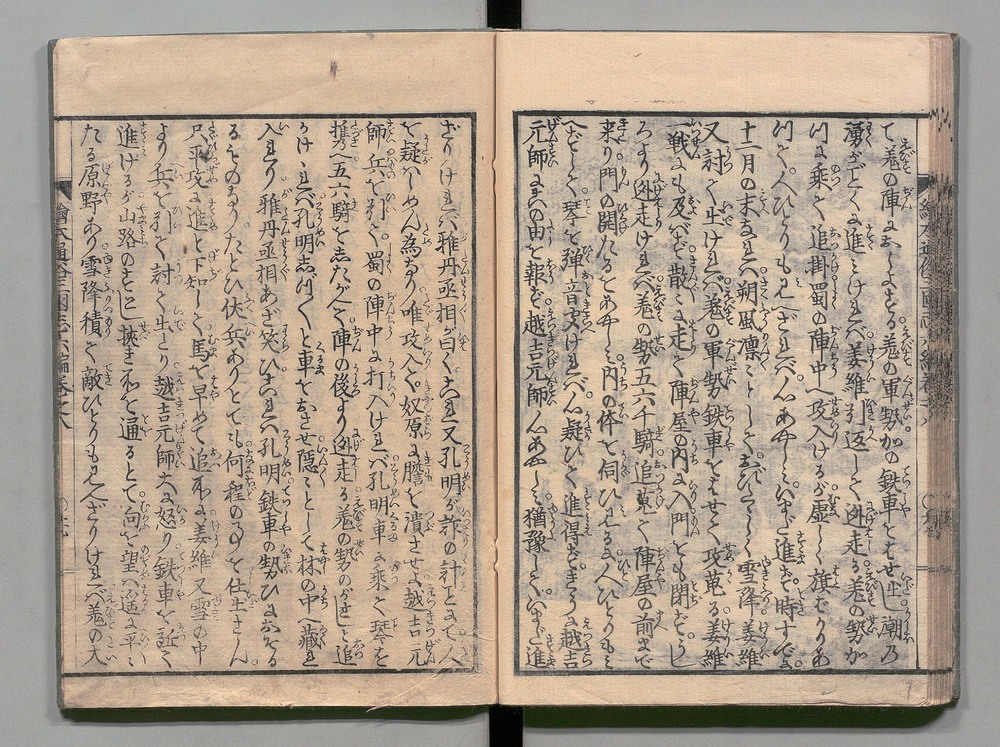 て羌の陣におしよする羌の軍勢かの鉄車をはせ出し潮乃
湧がごとくに進ミけれバ姜維引返して迯走る羌の勢か
つに乗て追掛蜀の陣中へ攻入けるが虚しく旗ばかりあ
つて人ひとりも見へざれバ心あやしミいまだ進ず時すでに
十二月の末なれバ朔風凛としておびたゞしく雪降姜維
又討て出けれバ羌の軍勢鉄車をはせて攻蒐る姜維
一戦にも及バず散に走て陣屋の内に入門をも閉ずうし
ろより迯走けれバ羌の勢五六千騎追来て陣屋の前まで
来り門の開たるをあやしミ内の体を伺ひたるに人ひとりも見
へずして琴を弾音聞けれバ心疑ひて進得ずときに越吉
元師にこの由を報ず越吉元師心あやしミ猶豫していまだ進
ざりけれバ雅丹丞相が曰くこれ又孔明が詐の計ごとにて人
を疑ハしめん為なり唯攻入て奴原に膽を潰させよ越吉元
師兵を引て蜀の陣中に打入けれバ孔明車に乗て琴を
携へ五六騎をしたがへて陣の後より迯走る羌の勢のがさじと追
かけけれバ孔明しづ〱と車をおさせ隠々として林の中へ藏れ
入たり雅丹丞相あざ笑ひこれハ孔明鉄車の勢ひにおそる
るものなりたとひ伏兵ありとても何程の事をか仕出さん
只平攻に進と下知して馬を早めて追ふに姜維又雪の中
より兵を引て討て出たり越吉元師大に怒り鉄車を近て
進けるが山路のすこし挾き処を通るとて向を望ハ遥に平ミ
たる原野あり雪降積て敵ひとりも見へざりけれバ羌の大
繪本通俗三國志六編巻之八